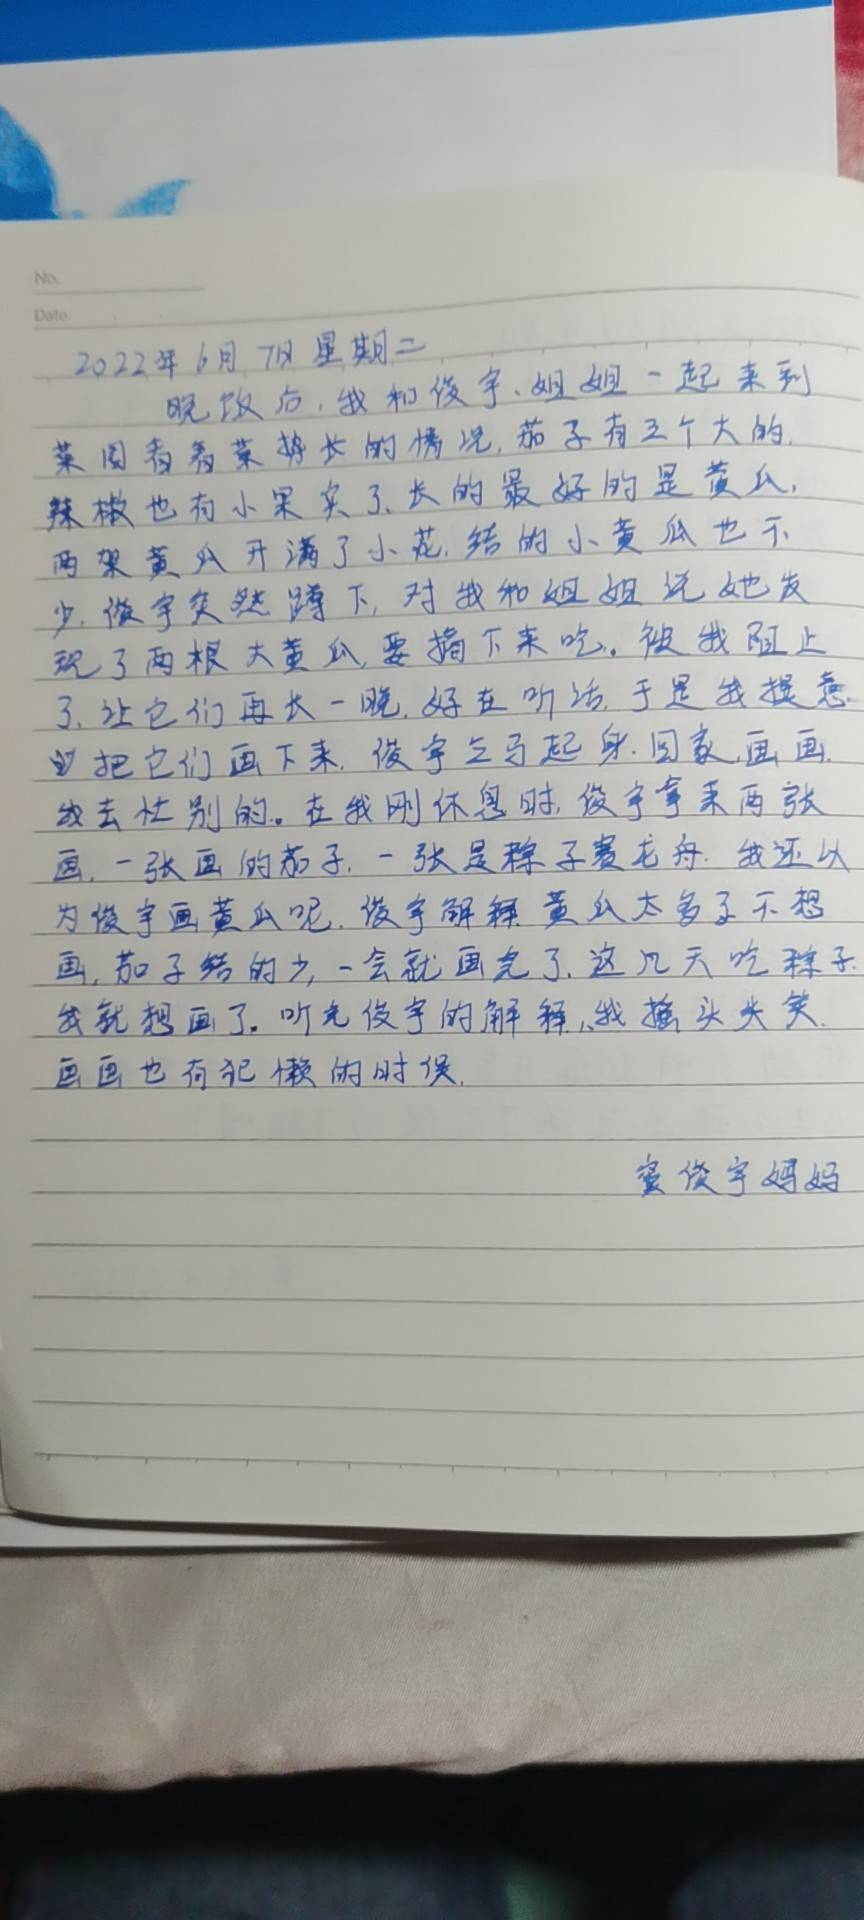 No.
Date.
2022年6月7日星期二
晚饭后,我和俊宇、姐姐一起来到
菜园看看菜将长的情况,茄子有三个大的,
辣椒也有小果实了,长的最好的是黄瓜,
两架黄瓜开满了小花,结的小黄瓜也不
少,俊宇突然蹲下,对我和姐姐说她发
现了两根大黄瓜,要摘下来吃。被我阻止
了,让它们再长一晚,好在听话,于是我提意
把它们画下来,俊宇立马起身,回家画画,
我去忙别的。在我刚休息时,俊宇拿来两张
画,一张画的茄子,一张是粽子赛龙舟,我还以
为俊宇画黄瓜呢,俊宇解释黄瓜太多了不想
画,茄子结的少,一会就画完了,这几天吃粽子,
我就想画了。听完俊宇的解释,我摇头失笑,
画画也有犯懒的时候,
俊宇妈妈